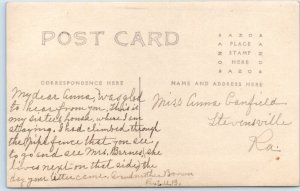 POST CARD
AZOB
PLACE
STAMP
HERE
AZOB
CORRESPONDENCE HERE
NAME AND ADDRESS HERE
My dear Anna, was glad
to hear from you. This is
my sisters house, where I am
staying. I had climbed through
the fence that you see
to go and see Mrs. Barnes, she
lives next on that side, the
day your letter came. Grandmother Brown
Miss Anna Canfield
Stevensville
Pa.